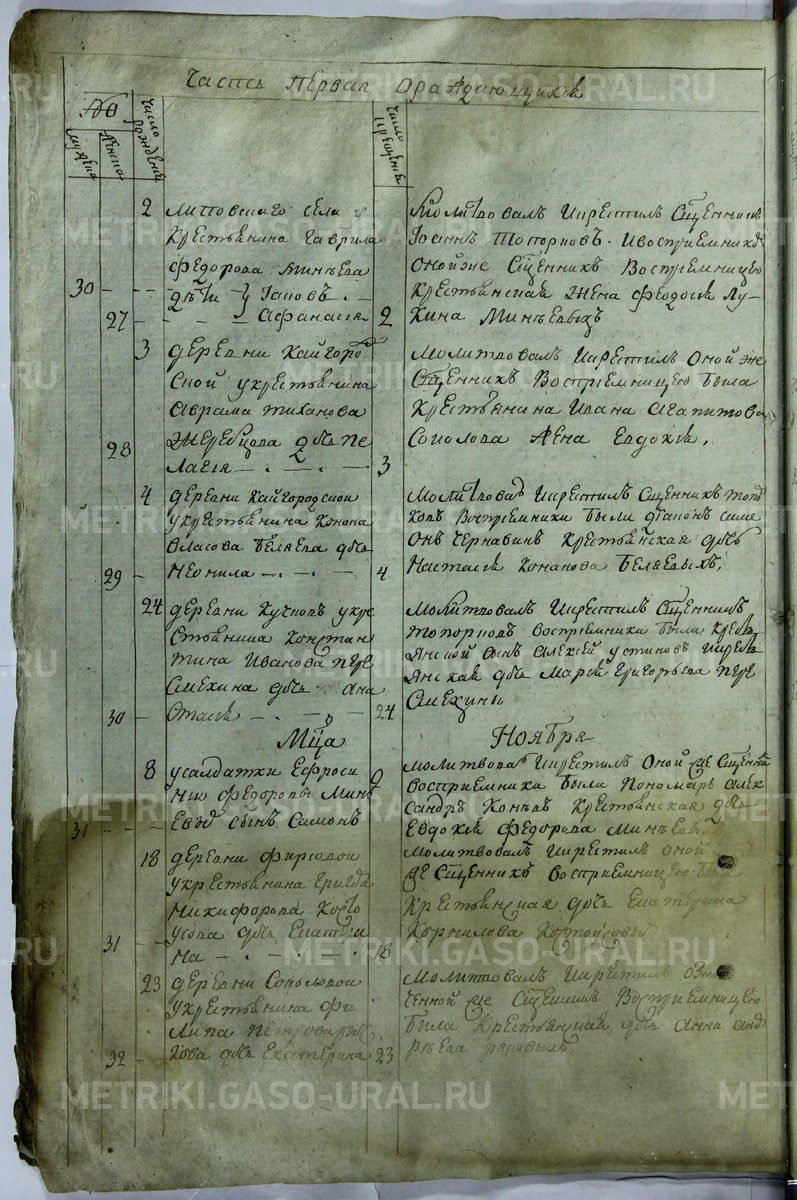 Часть первая ораждающихся
№
число рождения
число крещения
мужеска
женска
2
Литовскаго села у
крестьянина Гаврила
Федорова Минѣева
30 - - дѣти } Іаковъ . -
27 - - Афанасія
2
Молитвовалъ икрестилъ Сщенникъ
Іоаннъ Топорковъ. Ивосприемникъ
онойже Сщенникъ Восприемницею
крестьянская жена Феодосья Лу-
кина Минѣевыхъ
3
деревни кайгород
ской укрестьянина
Аврама Тиханова
28
Жеребцова дочь Пе
лагѣя - . - . -
3
Молитвовалъ икрестилъ оной же
Сщенникъ Восприемницею была
крестьянина Ивана Агапитова
Соколова жена Евдокія.
4
деревни кайгородской
укрестьянина Конона
Власова Беляева дочь
29 - Неонила - . - . -
4
молитвовалъ икрестилъ Сщенникъ топор
ковъ Восприемники были дьяконъ симе
онъ Чернавинъ крестьянская дочь
Настасья Конанова Беляевыхъ.
24
деревни Кучковъ укре
стьянина констан
тина Иванова пере
смехина дочь Ана
30 - стасья - . - . -
24
Молитвовалъ икрестилъ Сщенникъ
топорковъ восприемники были крест
янской сынъ Алексей устиновъ икрест
янская дочь Марья Григорьева пере
смехины
Мца Ноября
8
усалдатки Ефроси
ньи Федоровы Минѣ
31 - - евы сынъ Самонъ
9
молитвовалъ икрестилъ оной же Сщенникъ
восприемники были пономарь алек
сандръ Коневъ крестьянская дочь
Евдокія Федорова Минѣевы.
18
деревни фирсовой
укрестьянина
Никифорова
усова дочь Екатери
31 - на - . - . -
18
молитвовалъ икрестилъ оной
же Сщенникъ восприемницею была
крестьянская дочь Екатерина
Корнилова
23
деревни Соколовой
укрестьянина Фи
липа Петрова
32 - кова дочь Екатерина
23
молитвовалъ икрестилъ озна
ченной же Сщенникъ Восприемницею
была крестьянская дочь Анна анд
рѣева
METRIKI.GASO-URAL.RU